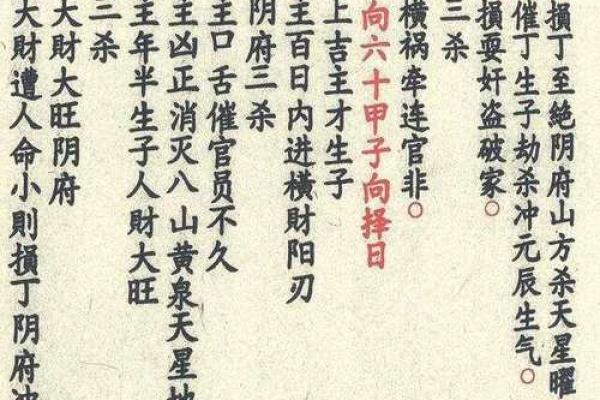 損丁至絶阴府山方杀天星曜
催丁生子劫杀冲元辰生气○
損耍奸盗破家○
三杀
横祸牵连官非○
向六十甲子向择日
上吉主才生子
主百日内进横財阳刃
阴府三杀
主口舌催官员不久
主凶正消灭八山黄泉天星地
主年半生子人財大旺
三杀
大財大旺阴府
大財遭人命小則損丁阴府冲